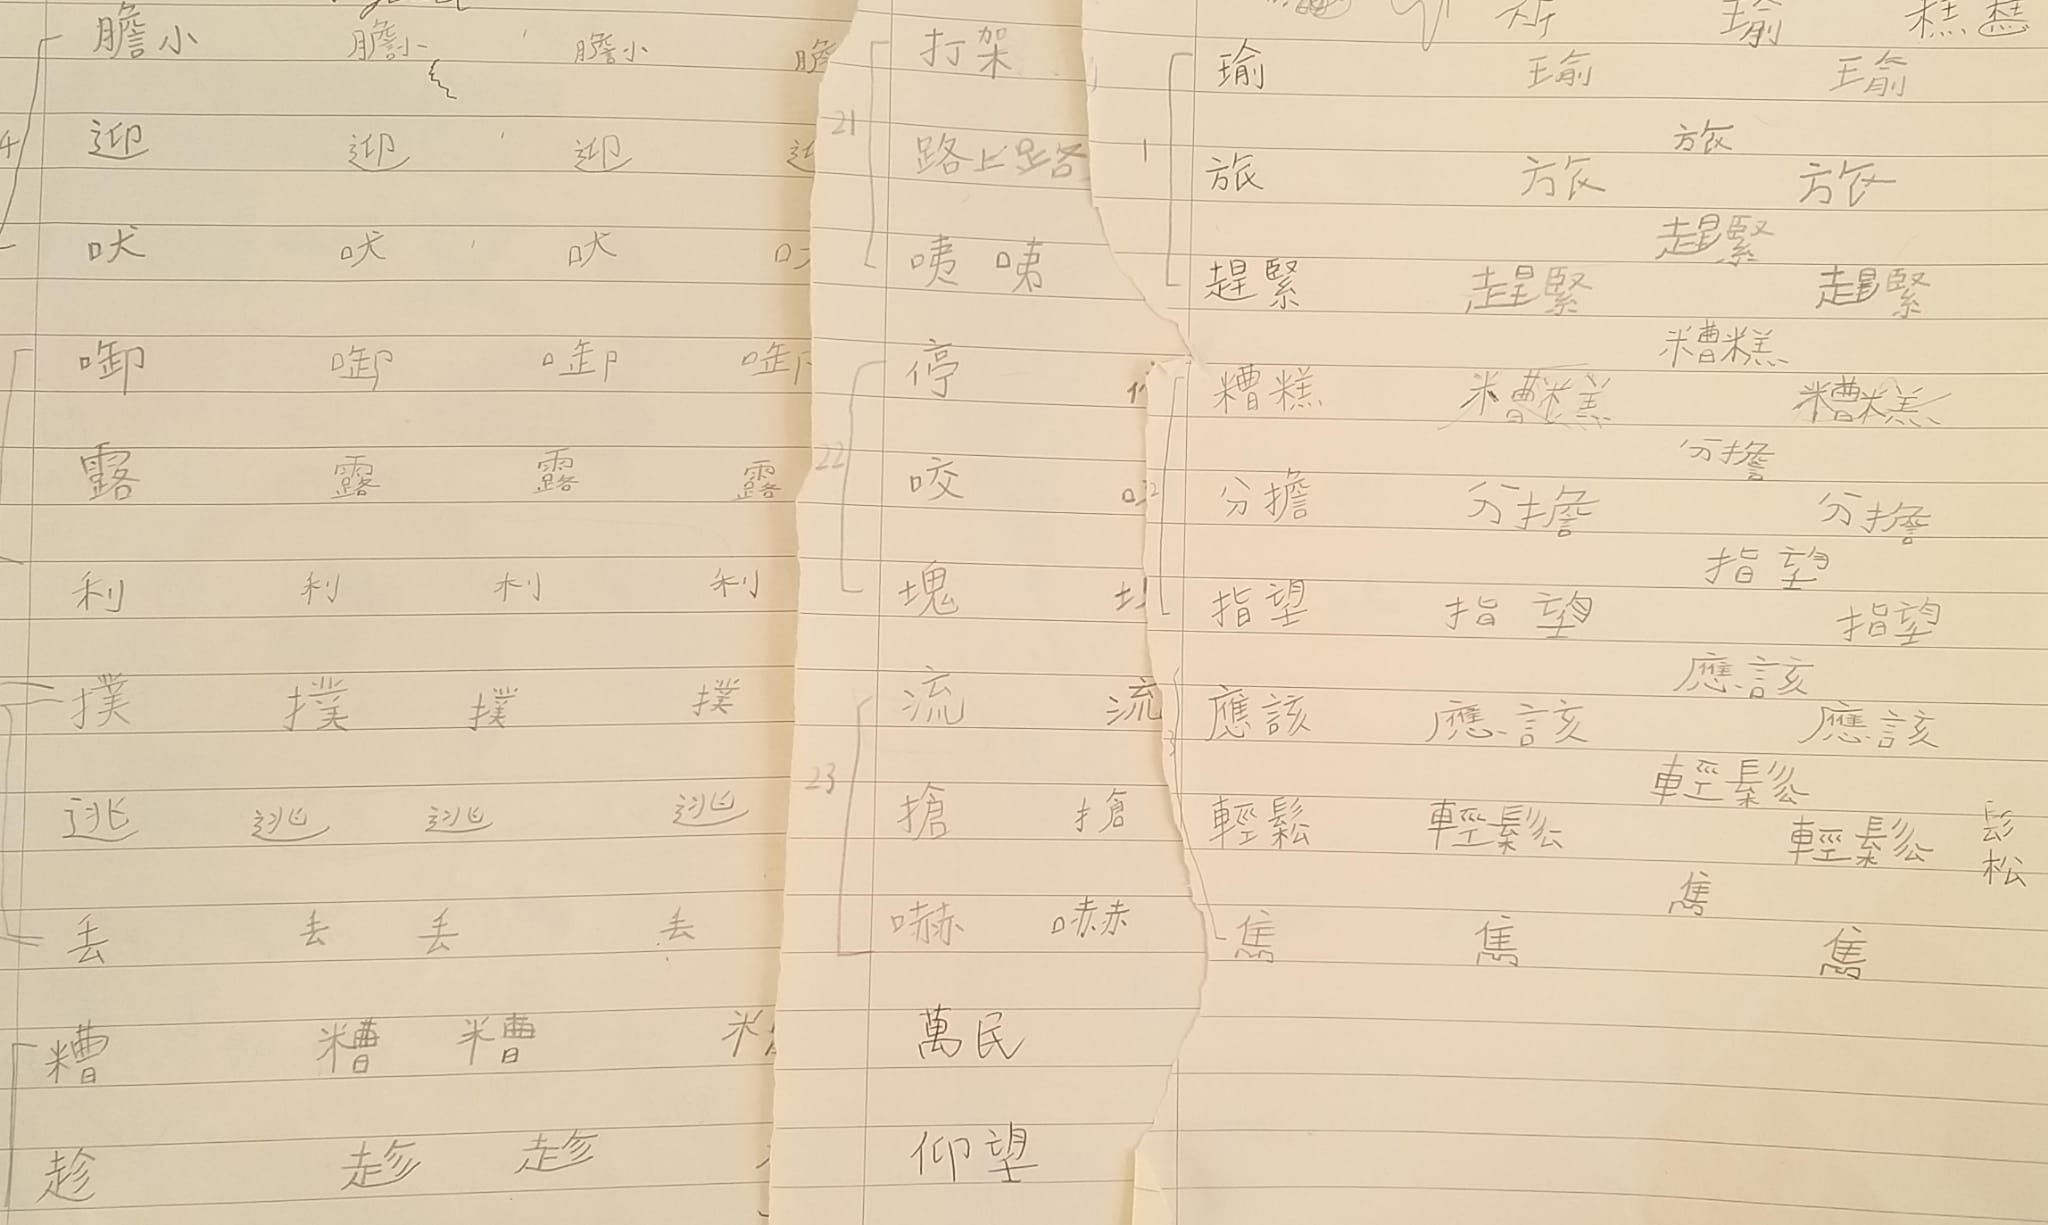 膽小 膽小 膽小 膽
迎 迎 迎
吠 吠 吠
啣 啣 啣 啣
露 露 露 露
利 利 利 利
撲 撲 撲 撲
逃 逃 逃 逃
丟 丟 丟 丟
糟 糟 糟
趁 趁 趁
打架
21
路上
咦 咦
停
22
咬
塊
流 流
23
搶 搶
嚇 嚇
萬民
仰望
瑜 糕
瑜 瑜 瑜
旅
1 旅 旅 旅
趕緊
趕緊 趕緊 趕緊
糟糕
糟糕 糟糕 糟糕
分擔
2 分擔 分擔 分擔
指望
指望 指望 指望
應該
3 應該 應該 應該
輕鬆
輕鬆 輕鬆 輕鬆 髟松